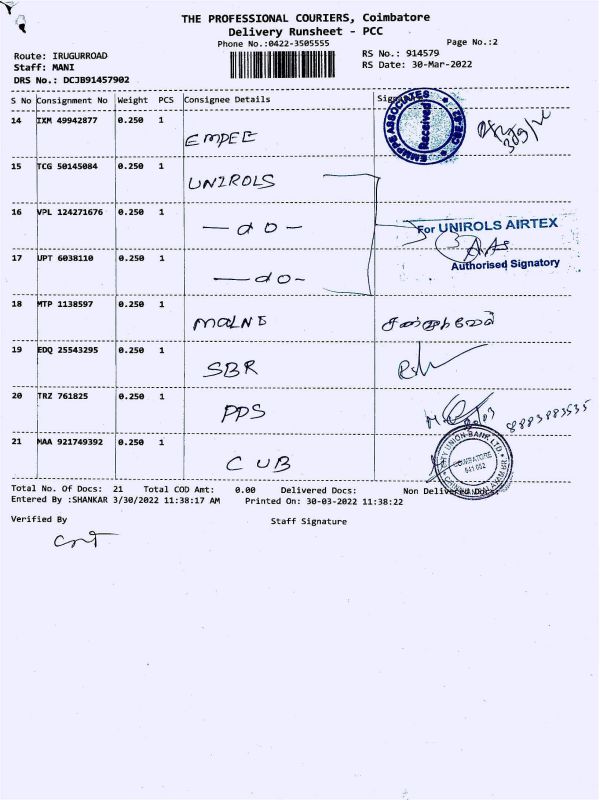 THE PROFESSIONAL COURIERS, Coimbatore
Delivery Runsheet - PCC
Phone No.:0422-3505555
Page No.:2
Route: IRUGURROAD
RS No.: 914579
Staff: MANI
RS Date: 30-Mar-2022
DRS No.: DCJB91457902
S No Consignment No Weight PCS Consignee Details
14 IXM 49942877 0.250 1 EMPEE
ASSOCIATES Received
15 TCG 50145084 0.250 1 UNIROLS
16 VPL 124271676 0.250 1 — do —
For UNIROLS AIRTEX
17 UPT 6038110 0.250 1 — do —
Authorised Signatory
18 MTP 1138597 0.250 1
19 EDQ 25543295 0.250 1 SBR
20 TRZ 761825 0.250 1 PPS
8883883535
21 MAA 921749392 0.250 1 CUB
CITY UNION BANK LTD
COIMBATORE
Total No. Of Docs: 21 Total COD Amt: 0.00 Delivered Docs: Non Delivered Docs:
Entered By :SHANKAR 3/30/2022 11:38:17 AM Printed On: 30-03-2022 11:38:22
Verified By
Staff Signature